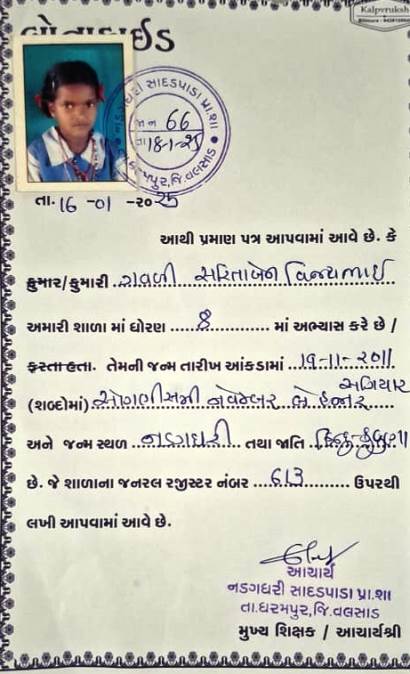 Kalpvruksh
બોનાફાઈડ
નડગધરી સાદડપાડા પ્રા.શા
જા.ન 66
તા.18-1-25
ધરમપુર,જિ.વલસાડ
તા. 16 -01 -૨૦25
આથી પ્રમાણ પત્ર આપવામાં આવે છે. કે
કુમાર/કુમારી ગાવળી સરિતાબેન વિજયભાઈ
અમારી શાળા માં ધોરણ 8 માં અભ્યાસ કરે છે /
કરતા હતા. તેમની જન્મ તારીખ આંકડામાં 19-11-2011
અગિયાર
(શબ્દોમાં) ઓગણીસમી નવેમ્બર બે હજાર
અને જન્મ સ્થળ નડગધરી તથા જાતિ હિન્દુ-કુંકણા
છે. જે શાળાના જનરલ રજીસ્ટર નંબર 613 ઉપરથી
લખી આપવામાં આવે છે.
આચાર્ય
નડગધરી સાદડપાડા પ્રા.શા
તા.ધરમપુર,જિ.વલસાડ
મુખ્ય શિક્ષક / આચાર્યશ્રી